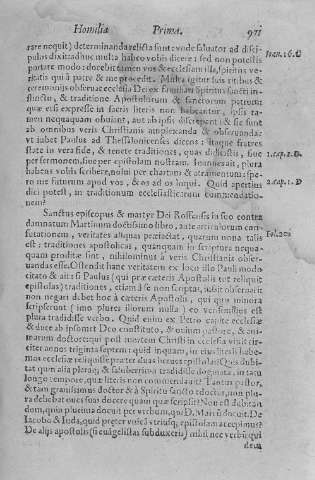 Homilia Prima. 971
rare nequit) determinanda relicta sunt: vnde saluator ad disci
pulos dixit: adhuc multa habeo vobis dicere: sed non potestis
portare modo: docebit tamen vos & ecclesiam illa, spiritus ve-
ritatis qui à patre & me procedit. Multa igitur suis ritibus &
ceremonijs obseruat ecclesia Dei ex familiari spiritus sancti in-
stinctu, & traditione Apostolorum & sanctorum patrum:
quæ etsi expresse in sacris literis non habeantur, ipsis ta-
men nequaquam obuiant, aut ab ipsis discrepent: & sic sunt
ab omnibus veris Christianis amplexanda & obseruanda:
vt iubet Paulus ad Thessalonicenses dicens: Itaque fratres
state in vera fide, & tenete traditiones, quas didicistis, siue
per sermonem, siue per epistolam nostram. Ioannes ait, plura
habens vobis scribere, nolui per chartam & atramentum: spe-
ro me futurum apud vos, & os ad os loqui. Quid apertius
dici potest, in traditionum ecclesiasticarum commendatio-
nem?
Ioan. 16. C
2. cap. 2. D.
2. cap. 1. D
Sanctus episcopus & martyr Dei Roffensis in suo contra
damnatum Martinum doctissimo libro, ante articulorum con-
futationem, veritates aliquas præiactat, quarum nona talis
est: traditiones apostolicas, quanquam in scriptura nequa-
quam proditæ sint, nihilominus à veris Christianis obser-
uandas esse. Ostendit hanc veritatem ex loco illo Pauli modo
citato & ait: si Paulus (qui præ cæteris Apostolis tot reliquit
epistolas) traditiones, etiam à se non scriptas, iubit obseruari:
non negari debet hoc à cæteris Apostolis, qui quo minora
scripserunt (imo plures illorum nulla) eo verisimilius est
plura tradidisse verbo. Quid enim ex Petro capite ecclesiæ
& duce ab ipsomet Deo constituto, & ouium pastore, & ani-
marum doctore: qui post mortem Christi in ecclesia vixit cir-
citer annos triginta septem: quid inquam, in eius literis habe-
mus ecclesiæ reliquisse præter duas breues epistolas? Quis dubi-
tat quin alia pleraq; & saluberrima tradiderit dogmata, in tam
longo tempore, quæ literis non commendauit? Tantus pastor,
& tam grandissimus doctor & à Spiritu sancto edoctus, non plu-
ra debebat oues suas docere quam quæ scripsit? Non est dubitan
dum, quin plurima docuit per verbum, qui D. Marcū docuit. De
Iacobo & Iuda, quid præter vnicā vtriusq; epistolam accepimus?
De alijs apostolis (si euāgelistas subduxeris) nihil nec verbū qui
fol. 201
dem